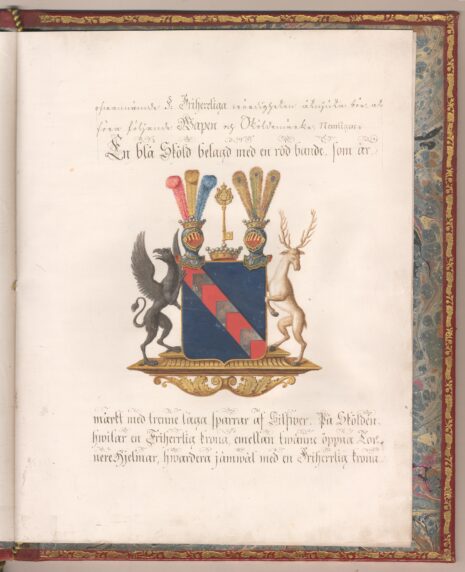 ofvannämde F. Friherrliga wärdigheten åtnjuta bör, at
föra följande Wapen och Sköldemärke; Nemligen:
En blå Sköld belagd med en röd bande, som är
märkt med trenne låga sparrar af Silfver. På Skölden
hwilar en Friherrlig krona, emellan twänne öpna Tor-
nere Hjelmar, hwardera jämwäl med en Friherrlig krona